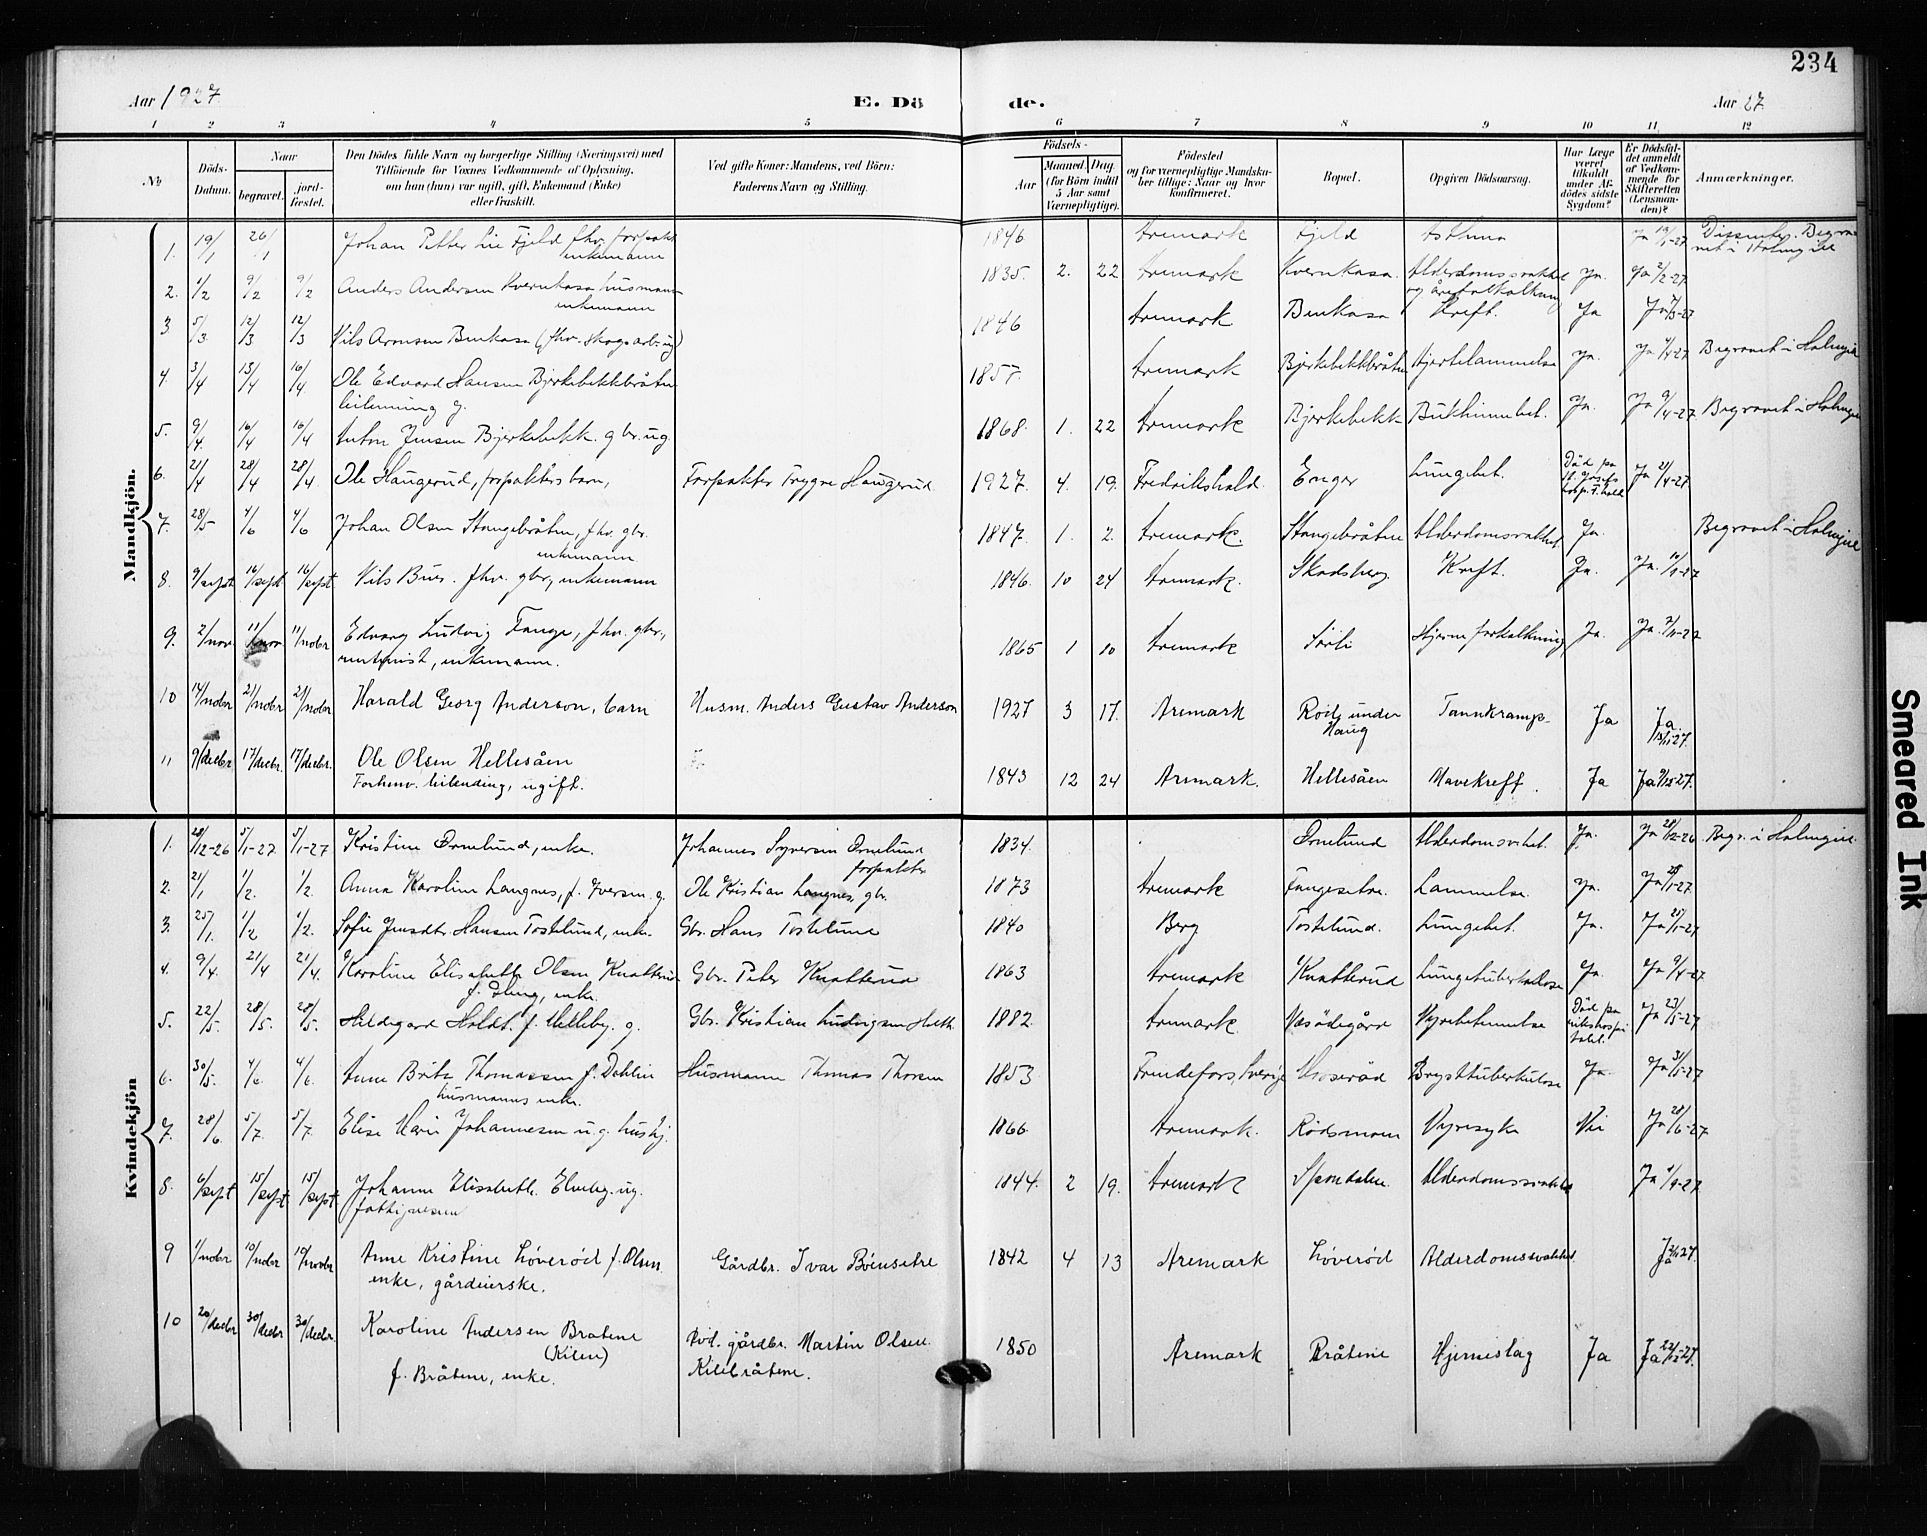 234
Aar 1927
E. Dö
de.
Aar 27.
1 2 3 4 5 6 7 8 9 10 11 12
No
Döds-Datum.
Naar
begravet.
jord-fæstet.
Den Dödes fulde Navn og borgerlige Stilling (Næringsvei) med
Tilföiende for Voxnes Vedkommende af Oplysning,
om han (hun) var ugift, gift, Enkemand (Enke)
eller fraskilt.
Ved gifte Koner: Mandens, ved Börn:
Faderens Navn og Stilling.
Födsels-
Aar
Maaned. Dag.
(for Börn indtil
5 Aar samt
Værnepligtige).
Födested
og for værnepligtige Mandsku-
ber tillige: Naar og hvor
konfirmeret.
Bopæl.
Opgiven Dödsaarsag.
Har Læge
været
tilkaldt
under Af-
dödes sidste
Sygdom?
Er Dödsfal-
det anmeldt
af Vedkom-
mende for
Skifteretten
(Lensman-
den)?
Anmærkninger.
Mandkjön.
1. 19/1 26/1 Johan Petter Lie Fjeld fhv. forpakt. enkemann 1846 Aremark Fjeld Asthma Ja 19/1-27 Dissenter. Begravet i Holmgil
2. 1/2 9/2 9/2 Anders Andersen Kvernkasa husmann enkemann 1835. 2. 22 Aremark Kvernkasa Alderdomssvakhet og åreforkalkning Ja. Ja 2/2-27
3 5/3 12/3 12/3 Nils Aronsen Buukasa (fhv. skogsarb. ug) 1846 Aremark Buukasa Kreft. Ja Ja 7/3-27
4. 3/4 13/4 16/4 Ole Edvard Hansen Bjerkebekkbråten leilending g. 1857. Aremark Bjerkebekkbråten Hjertelammelse Ja. Ja 4/4-27 Begravet i Holmgil
5. 9/4. 16/4 16/4 Anton Jensen Bjerkebekk. gbr. ug. 1868. 1. 22 Aremark Bjerkebekk Bukhinnebet. Ja. Ja 9/4-27. Begravet i Holmgil
6. 21/4 28/4 28/4. Ole Haugerud, forpakters barn, Forpakter Trygve Haugerud. 1927. 4. 19. Fredrikshald. Enger Lungebet. Död på St. Josefs hosp. F.hald Ja 21/4-27.
7. 28/5 4/6 4/6 Johan Olsen Stangebråten, fhv. gbr. enkemann 1847. 1. 2. Aremark. Stangebråten Alderdomssvakhet. Ja. Begravet i Holmgil
8. 9/sept 16/sept 16/sept Nils Buer. fhv. gbr, enkemann 1846. 10 24 Aremark. Skodsberg Kreft. Ja. Ja. 10/9-27
9. 2/nov. 11/nov. 11/nobr Edvard Ludvig Fange, fhv. gbr., rentenist, enkemann. 1865 1 10 Aremark Sörli Hjerneforkalkning Ja. Ja. 2/11-27
10 14/nobr 21/nobr 21/nobr Harald Georg Anderson, barn Husm. Anders Gustav Anderson 1927 3 17. Aremark Röd, under Haug Tannkramp- Ja Ja 15/11 27.
11 9/decbr 17/decbr. 17/decbr. Ole Olsen Hellesåen Forhenv. leilending, ugift. 1843 12 24 Aremark. Hellesåen Mavekreft. Ja Ja 9/12-27.
Kvindekjön
1. 20/12-26 5/1-27 5/1-27 Kristine Ørnelund, enke. Johannes Syversen Ørnelund forpakter 1834. Ørnelund Alderdomssvkhet. Ja. Ja 28/12-26 Begr. i Holmgil.
2. 21/1 1/2. 1/2. Anna Karoline Langnes, f. Iversen g. Ole Kristian Langnes, gbr. 1873 Aremark Fangesetre. Lammelse. Ja. Ja 28/1-27.
3. 25/1. 1/2 1/2. Sofie Jensdtr. Hansen Tostelund, enke. Gbr. Hans Tostelund 1840 Berg Tostelund. Lungebet. Ja. Ja 25/1-27
4. 9/4. 21/4 21/4. Karoline Elisabeth Olsen Knatterud f. Eling, enke. Gbr. Peter Knatterud 1863 Aremark Knatterud Lungetuberkulose Ja. Ja 9/4-27
5. 22/5. 28/5. 28/5. Hildegard Holth f. Melleby. g. Gbr. Kristian Ludvigsen Holth 1882. Aremark. Væsödegård Nyrebetennelse Död på rikshospitalet. Ja 23/5-27.
6. 30/5. 4/6. 4/6. Anne Brita Thomassen f. Dahlin husmanns enke. Husmann Thomas Thorsen 1853 Frendefors, Sverige Moseröd Brysttuberkulose Ja Ja 31/5-27
7. 28/6. 5/7. 5/7. Elise Marie Johannesen u.g. hushj. 1866 Aremark. Rödsmoen Nyresyke Nei Ja 28/6-27
8. 6/sept 15/sept 15/sept Johanne Elisabeth. Elveby. ug. fattiglem 1844. 2 19. Aremark Spondalen. Alderdomssvakhet Ja 1/9-27
9 1/nobr 10/nobr 10/nobr Anne Kristine Løverød f. Olsen enke, gårdeierske. Gårdbr. Ivar Bøensetre 1842 4 13 Aremark Løverød Alderdomssvakhet. Ja 2/11 27.
10 20/decbr 30/decbr 30/decbr Karoline Andersen Bråtene (Kilen) f. Bråtene, enke. Avd. gårdbr. Martin Olsen. Kilebråtene. 1850 Aremark Bråtene Hjerneslag Ja Ja 22/12-27.
Smeared Ink